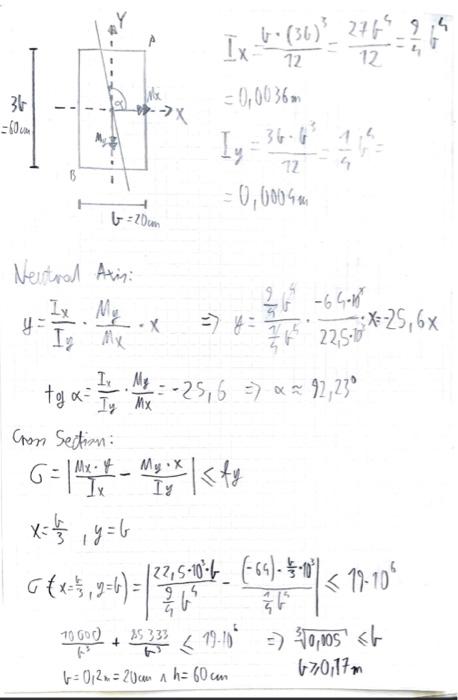 Y
A
3b
=60cm
α
Mx
X
My
B
b=20cm
Ix = b·(3b)³/12 = 27b⁴/12 = 9/4 b⁴
= 0,0036m
Iy = 3b·b³/12 = 1/4 b⁴ =
= 0,0004m
Neutral Axis:
y = Ix/Iy · My/Mx · x ⇒ y = (9/4 b⁴)/(1/4 b⁴) · (-64·10³)/(22,5·10³) · x = -25,6x
tg α = Ix/Iy · My/Mx = -25,6 ⇒ α ≈ 92,23°
Cross Section:
σ = |Mx·y/Ix - My·x/Iy| ≤ fy
x = b/3 , y = b
σ(x=b/3, y=b) = |22,5·10³·b/(9/4 b⁴) - (-64)·b/3·10³/(1/4 b⁴)| ≤ 19·10⁶
10000/b³ + 85333/b³ ≤ 19·10⁶ ⇒ ³√0,005 ≤ b
b=0,2m=20cm ∧ h=60cm b≥0,17m